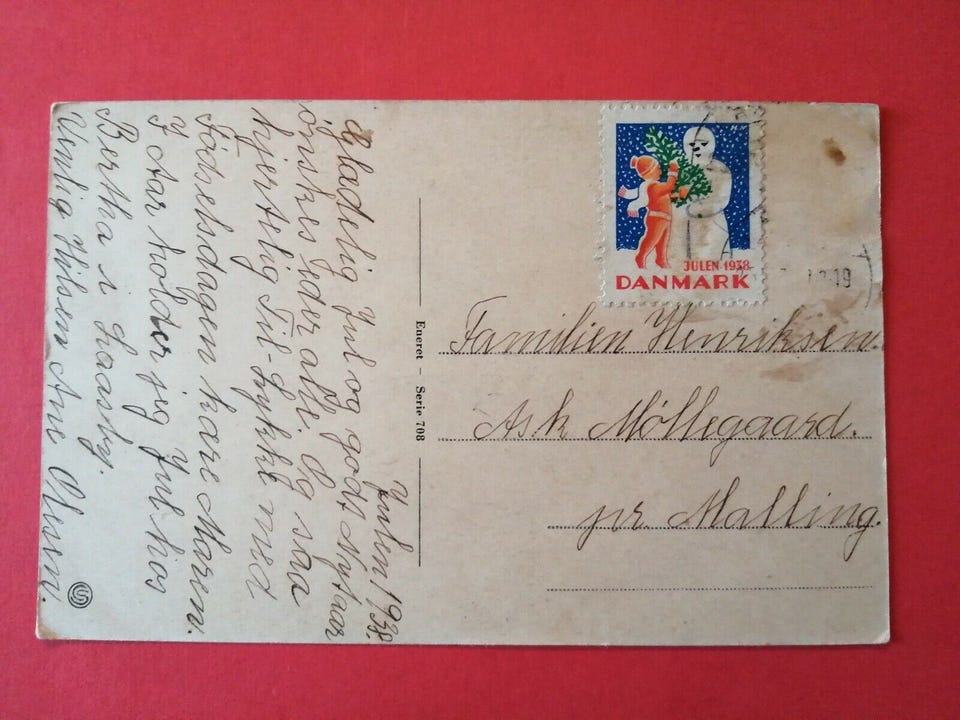 Julen 1938.
Glædelig Jul og godt Nytaar
önskes eder alle. Og saa
hjertelig Til-Lykke med
Födselsdagen kære Maren.
I Aar holder jeg Jul hos
Bertha i Laasby.
Venlig Hilsen Ane Olesen.
Eneret - Serie 708
JULEN·1938·
DANMARK
19
Familien Henriksen.
Ask Møllegaard.
pr. Malling.